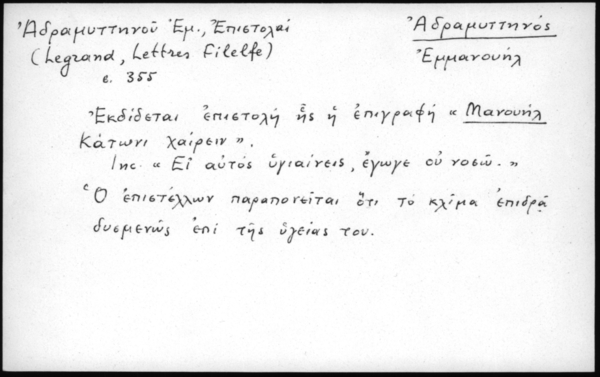 Ἀδραμυττηνοῦ Ἐμ., Ἐπιστολαί
(Legrand, Lettres Filelfe)
σ. 355
Ἀδραμυττηνός
Ἐμμανουήλ
Ἐκδίδεται ἐπιστολή ἧς ἡ ἐπιγραφή « Μανουήλ
Κάτωνι χαίρειν ».
Inc. « Εἰ αὐτός ὑγιαίνεις, ἔγωγε οὐ νοσῶ. »
Ὁ ἐπιστέλλων παραπονεῖται ὅτι τό κλῖμα ἐπιδρᾷ
δυσμενῶς ἐπί τῆς ὑγείας του.